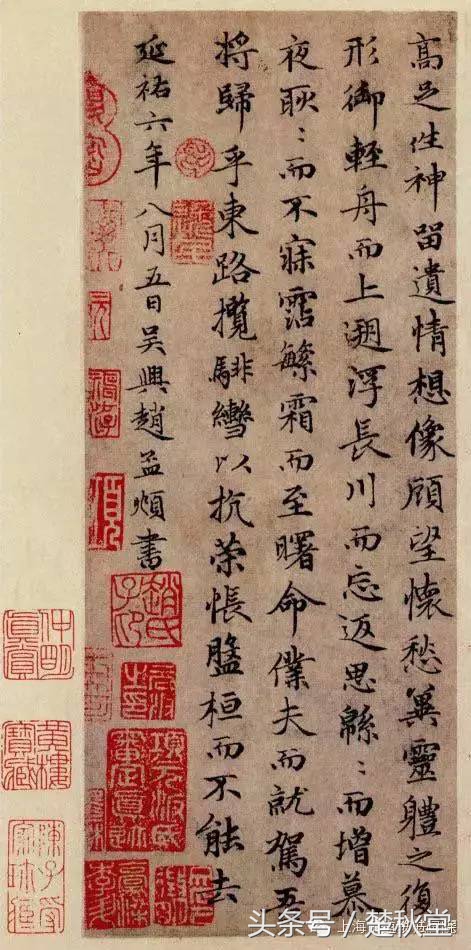 高足往神留遺情想像顧望懷愁冀靈體之復
形御輕舟而上遡浮長川而忘返思緜〻而增慕
夜耿〻而不寐霑繁霜而至曙命僕夫而就駕吾
將歸乎東路攬騑轡以抗策悵盤桓而不能去
延祐六年八月五日吴興趙孟頫書
趙氏子昂
头条号 / 楚秋堂